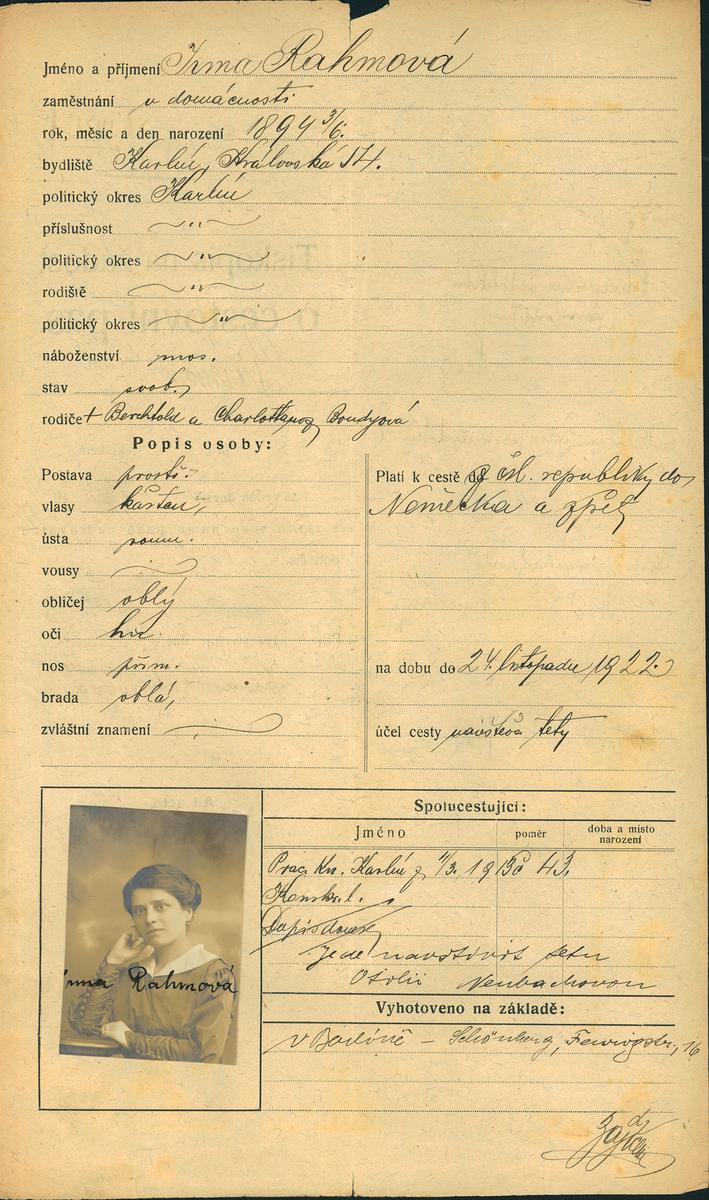 Jméno a příjmení Irma Rahmová
zaměstnání v domácnosti
rok, měsíc a den narození 1894 3/6.
bydliště Karlín, Královská 54.
politický okres Karlín
příslušnost — " —
politický okres — " —
rodiště — " —
politický okres — " —
náboženství mos.
stav svob.
rodiče + Berchtold a Charlotta Bondyová
Popis osoby:
Postava prostř.
vlasy kaštan,
ústa soum.
vousy
obličej oblý
oči hn.
nos přím.
brada oblá,
zvláštní znamení
Platí k cestě do z čsl. republiky do
Německa a zpět
na dobu do 24. listopadu 1922
účel cesty návštěva tety
Irma Rahmová
Spolucestující:
Jméno poměr doba a místo narození
Prac. Kn. Karlín z 11/3. 19
Konskr. l.
Jede navštíviti tetu
Otolii Neubachovou
Vyhotoveno na základě:
v Berlíně – Schönberg, 16